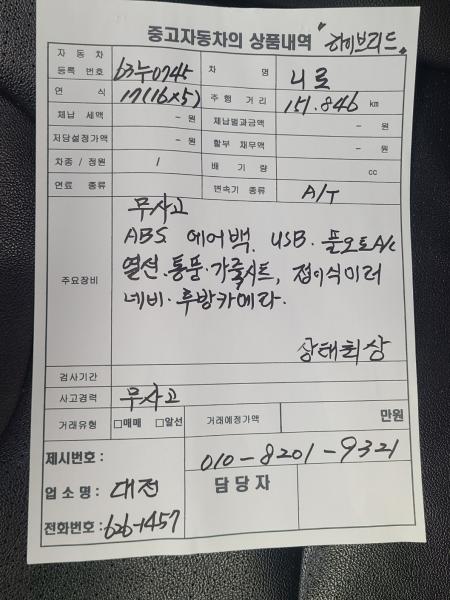 중고자동차의 상품내역 "하이브리드"
자동차 등록 번호 63누0745 차 명 니로
연 식 17(16x5) 주 행 거 리 151.846 km
체납 세액 - 원 체납벌과금액 - 원
저당설정가액 - 원 할부 채무액 - 원
차종 / 정원 / 배 기 량 cc
연료 종류 변속기 종류 A/T
무사고
ABS 에어백. USB. 풀오토A/C
주요장비 열선.통풍.가죽시트, 접이식미러
네비.후방카메라.
상태최상
검사기간
사고경력 무사고
거래유형 □매매 □알선 거래예정가액 만원
제시번호 : 010-8201-9321
업 소 명 : 대전 담 당 자
전화번호 : 626-1457